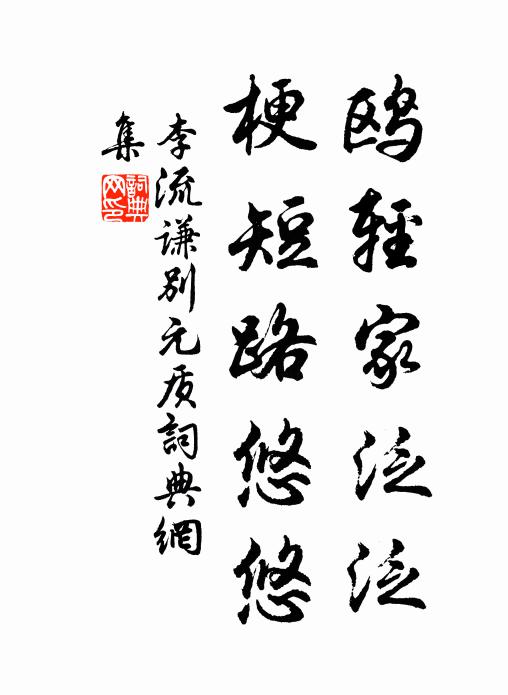 鸥輕家泛泛
梗短路悠悠
李流谦别元质詞典網
集
詞典网印